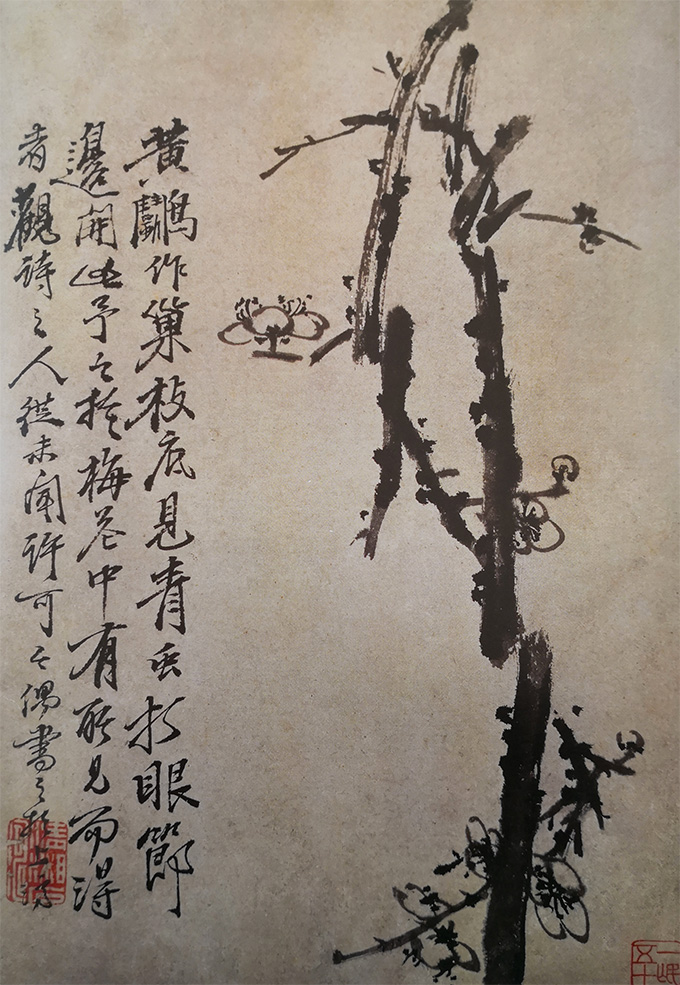 黄鸝作巢枝底見青虫打眼節
邊開此予之於梅花中有所見而得
者觀詩之人從未聞許可之偶書之於上